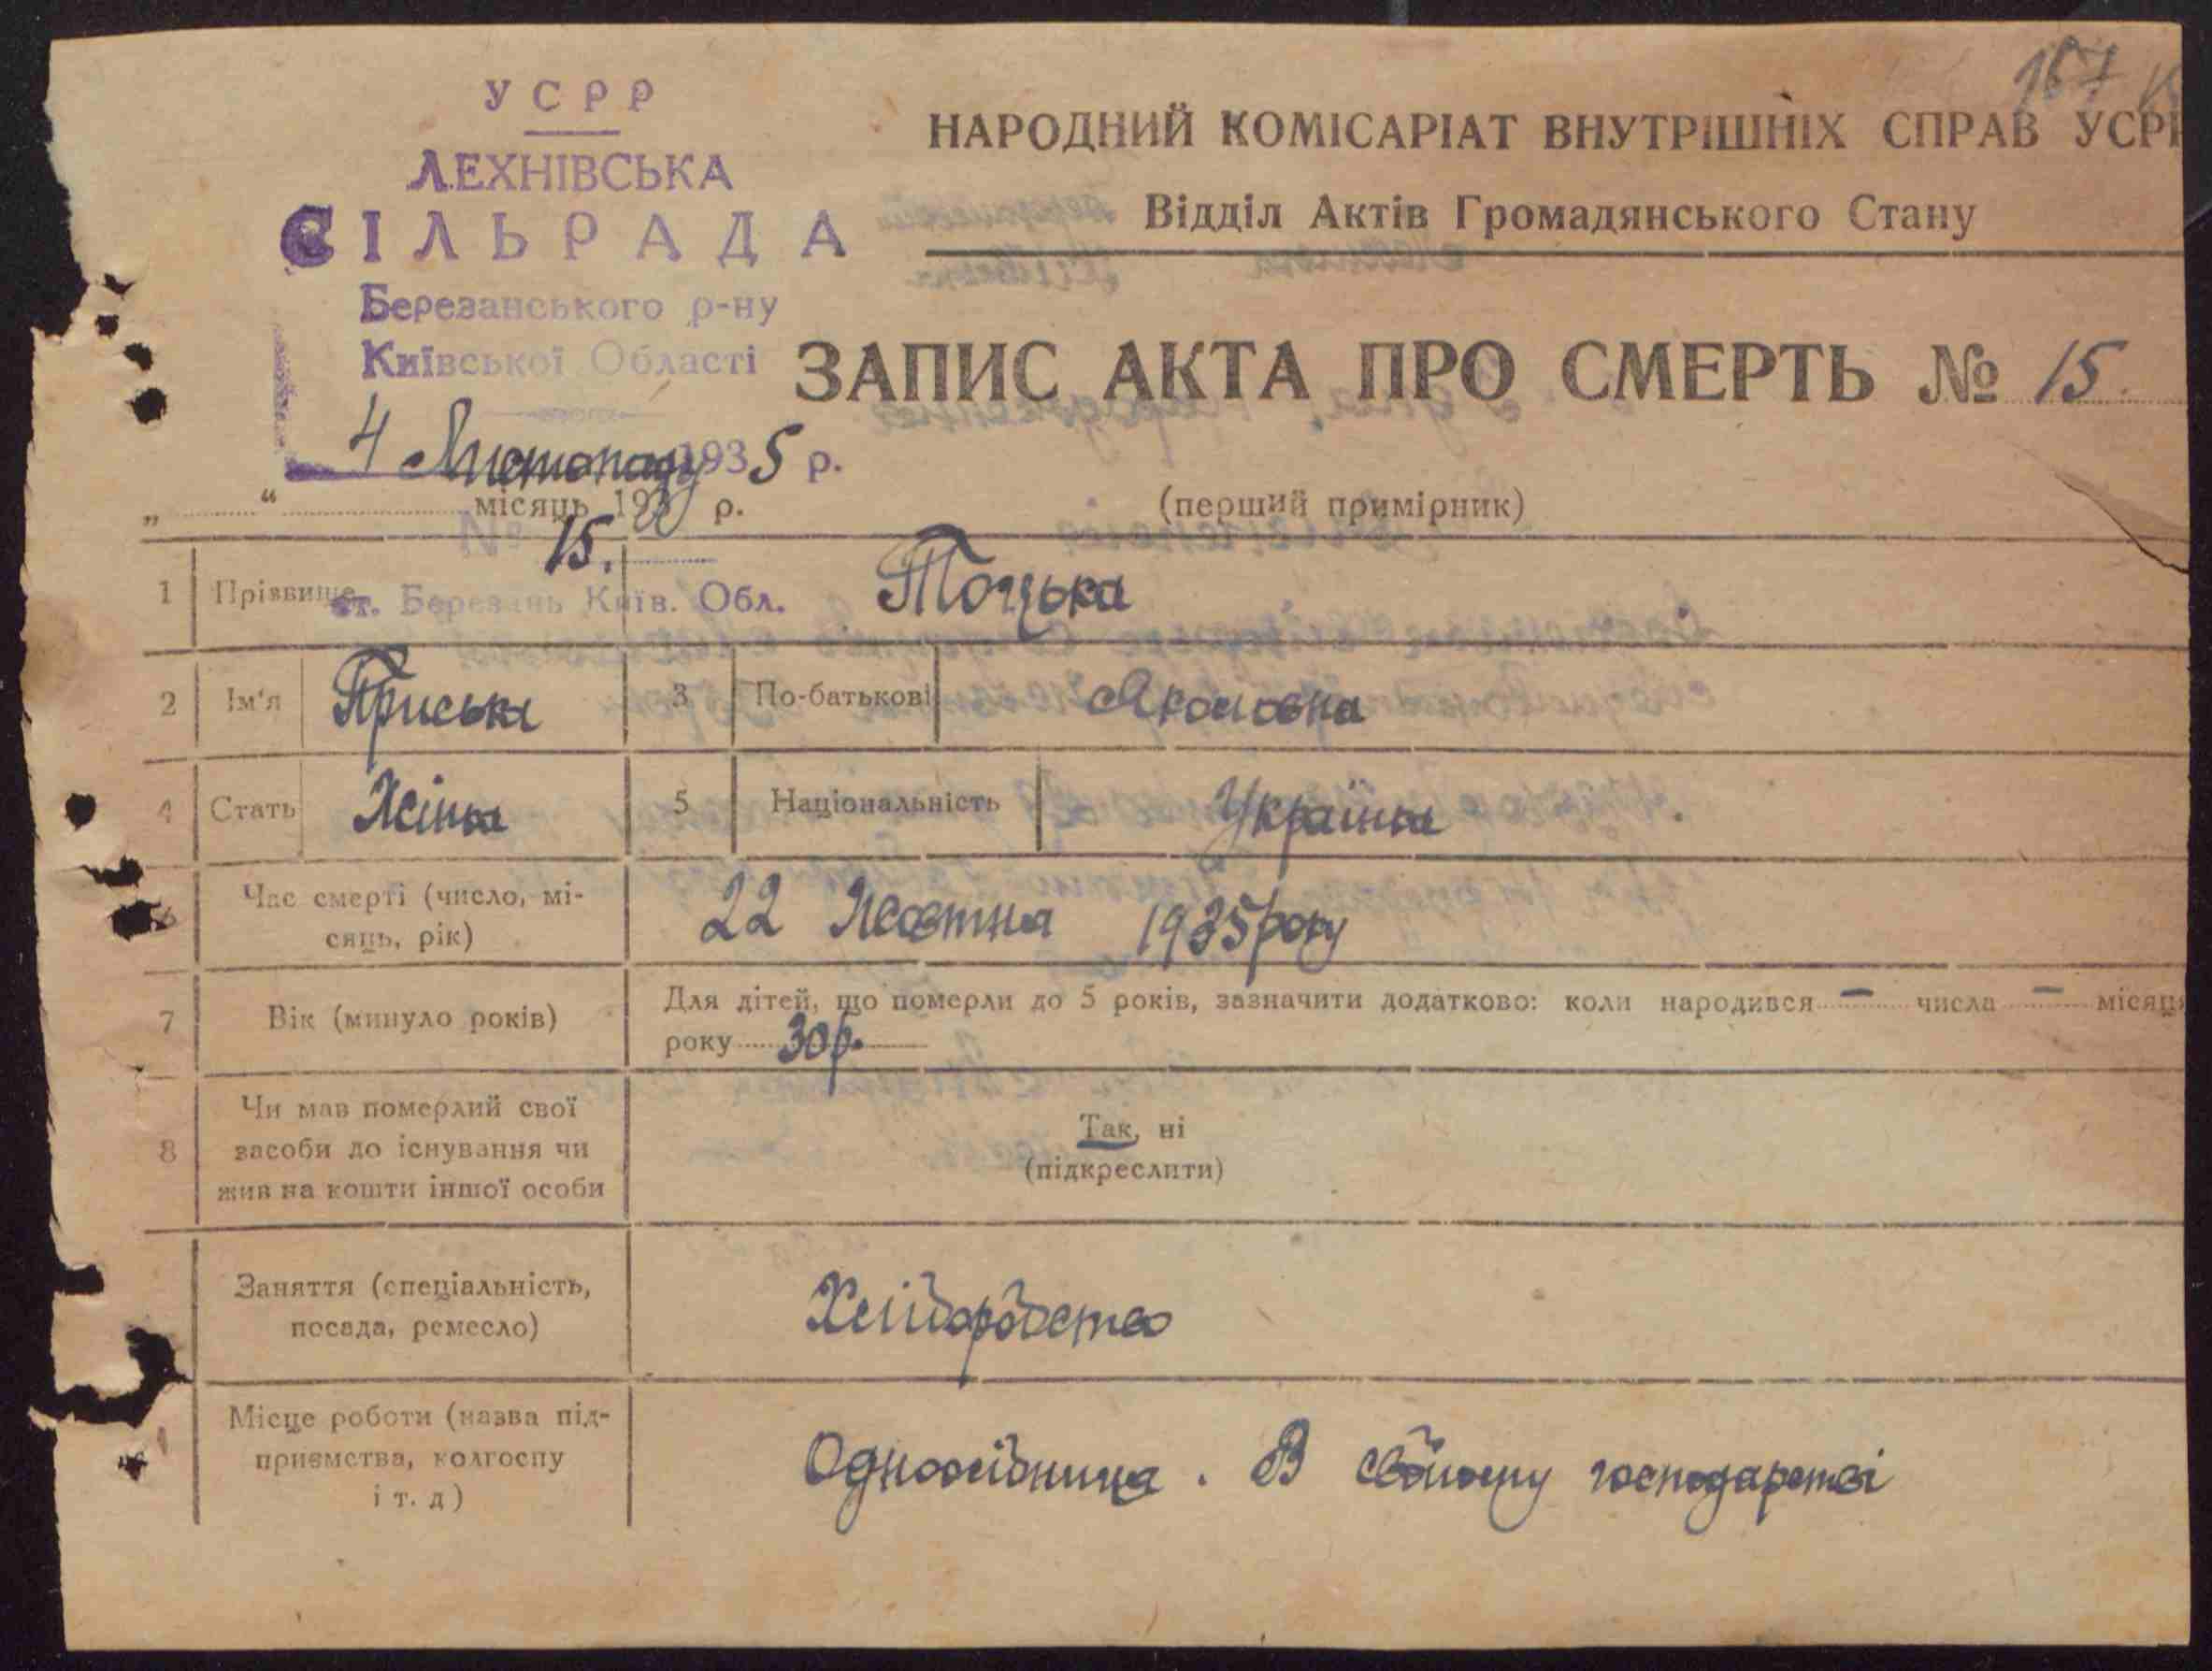 167
УСРР
ЛЕХНІВСЬКА
СІЛЬРАДА
Березанського р-ну
Київської Області
4 Листопаду 1935 р.
№ 15.
ст. Березань Київ. Обл.
НАРОДНИЙ КОМІСАРІАТ ВНУТРІШНІХ СПРАВ УСРР
Відділ Актів Громадянського Стану
ЗАПИС АКТА ПРО СМЕРТЬ № 15.
„ “ місяць 193 р.
(перший примірник)
1 Прізвище Тоцька
2 Ім'я Приська 3 По-батькові Якомовна
4 Стать Жінка 5 Національність Українка
Час смерті (число, мі-
сяць, рік) 22 Жовтня 1935 року
7 Вік (минуло років) Для дітей, що померли до 5 років, зазначити додатково: коли народився — числа — місяця
року 30 р.
8 Чи мав померлий свої
засоби до існування чи
жив на кошти іншої особи
Так, ні
(підкреслити)
Заняття (спеціальність,
посада, ремесло) Хліборобство
Місце роботи (назва під-
приємства, колгоспу
і т. д)
Одноосібниця. В своїому господарстві